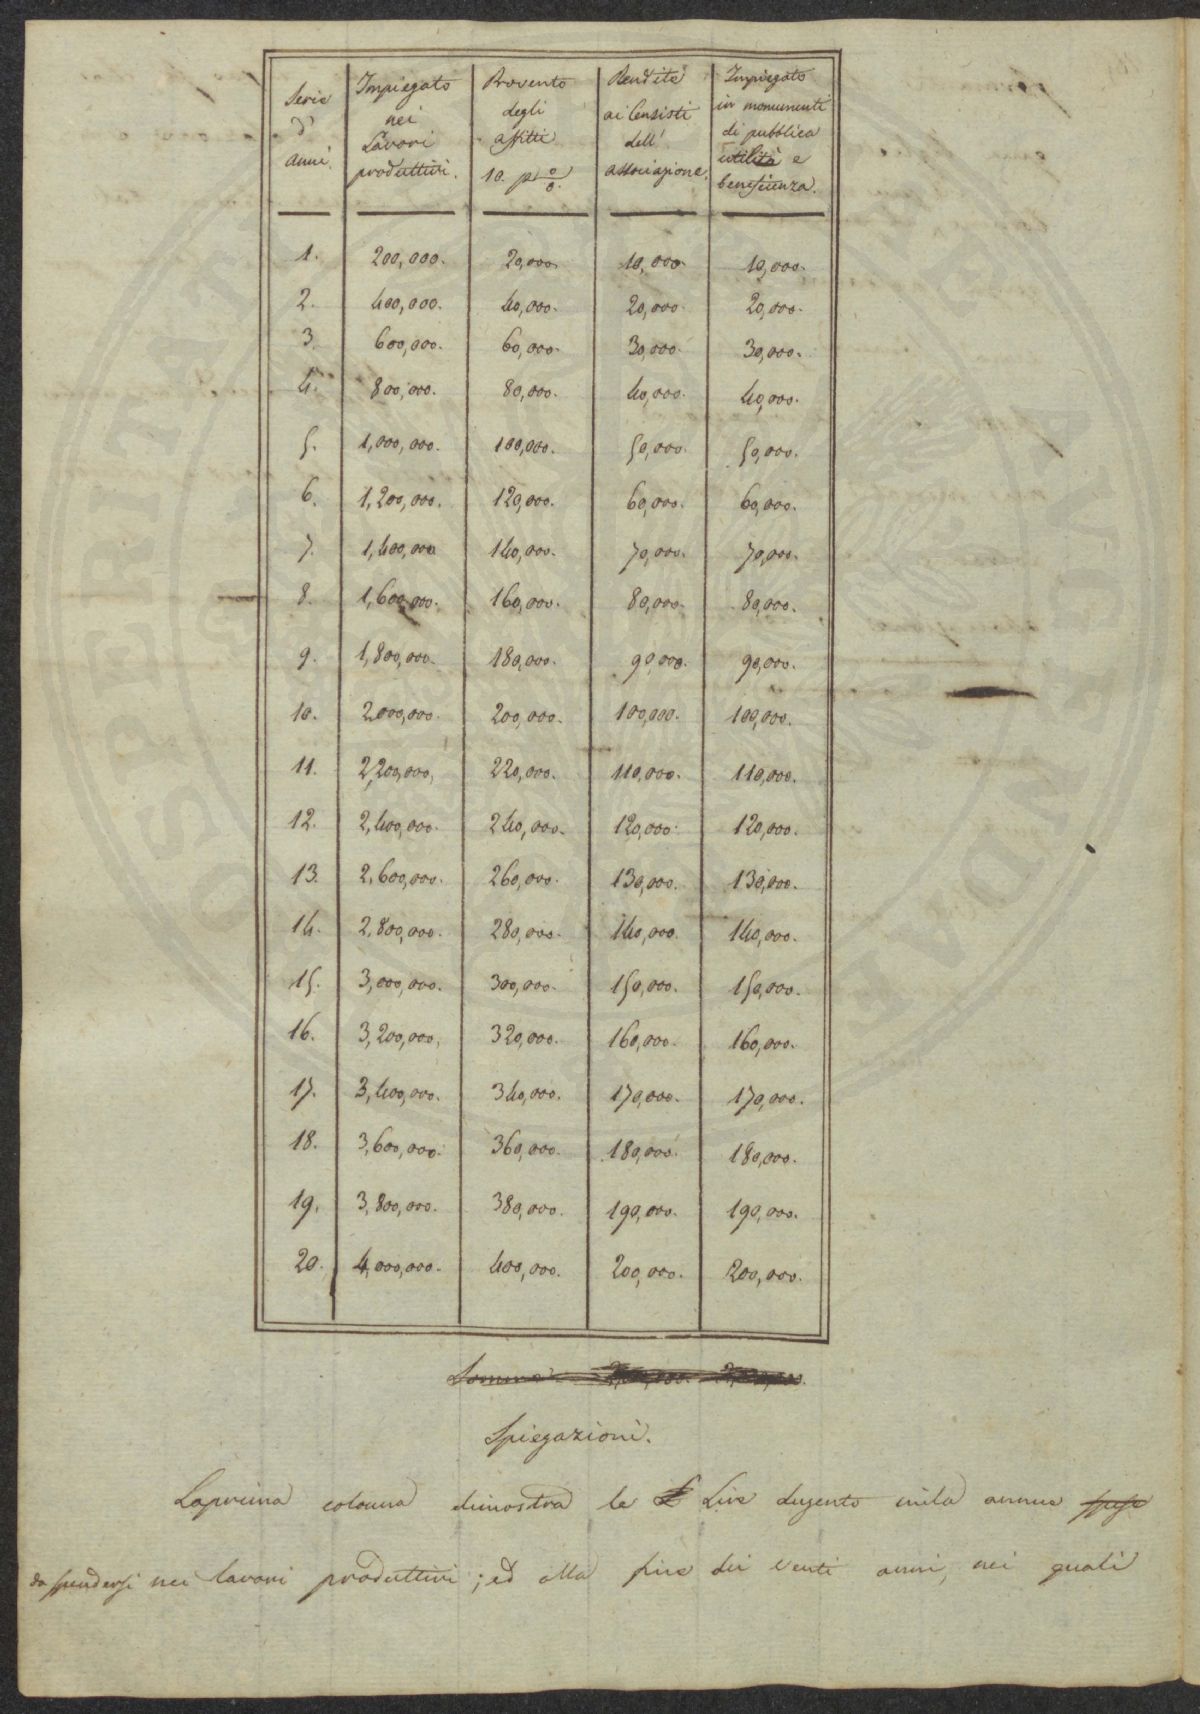 Serie d' anni. | Impiegato nei Lavori produttivi. | Provento degli affitti 10. p o/o. | Rendite ai Censisti dell' associazione. | Impiegato in monumenti di pubblica utilità e beneficenza.
1. 200,000. 20,000. 10,000. 10,000.
2. 400,000. 40,000. 20,000. 20,000.
3. 600,000. 60,000. 30,000. 30,000.
4. 800,000. 80,000. 40,000. 40,000.
5. 1,000,000. 100,000. 50,000. 50,000.
6. 1,200,000. 120,000. 60,000. 60,000.
7. 1,400,000 140,000. 70,000. 70,000.
8. 1,600,000. 160,000. 80,000. 80,000.
9. 1,800,000. 180,000. 90,000. 90,000.
10. 2,000,000. 200,000. 100,000. 100,000.
11. 2,200,000, 220,000. 110,000. 110,000.
12. 2,400,000. 240,000. 120,000. 120,000.
13. 2,600,000. 260,000. 130,000. 130,000.
14. 2,800,000. 280,000. 140,000. 140,000.
15. 3,000,000. 300,000. 150,000. 150,000.
16. 3,200,000, 320,000. 160,000. 160,000.
17. 3,400,000. 340,000. 170,000. 170,000.
18. 3,600,000. 360,000. 180,000. 180,000.
19. 3,800,000. 380,000. 190,000. 190,000.
20. 4,000,000. 400,000. 200,000. 200,000.
Somma
Spiegazioni.
La prima colonna dimostra le Lire dugento mila annue spese
da spendersi nei lavori produttivi; ed alla fine dei venti anni, nei quali